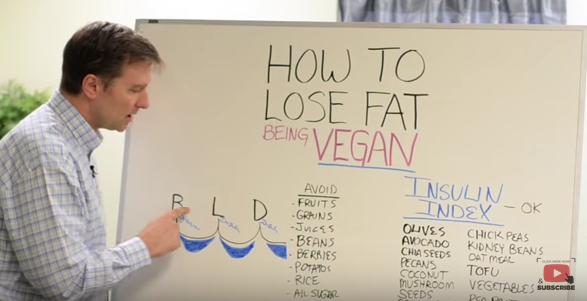 HOW TO
LOSE FAT
BEING VEGAN
B L D
AVOID
- FRUITS
- GRAINS
- JUICES
- BEANS
- BERRIES
- POTATOS
- RICE
- ALL SUGAR
INSULIN
INDEX - OK
OLIVES
AVOCADO
CHIA SEEDS
PECANS
COCONUT
MUSHROOM
SEEDS
CHICK PEAS
KIDNEY BEANS
OATMEAL
TOFU
VEGETABLES
&
SUBSCRIBE